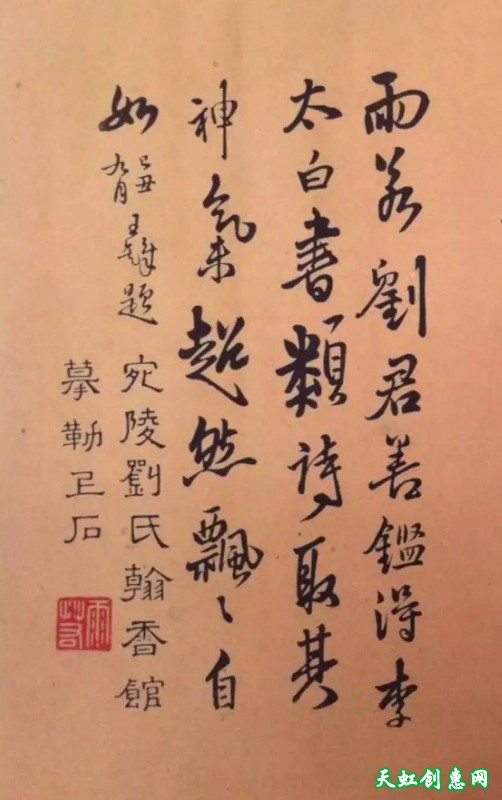 雨若劉君善鑑得李
太白書類詩取其
神氣超然飄〻自
如
己丑九月王鐸題
宛陵劉氏翰香館
摹勒上石
雨若
天虹创惠网